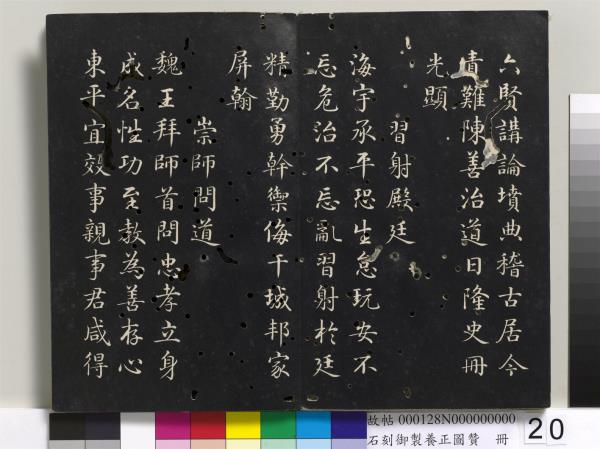 六賢講論墳典稽古居今
責難陳善治道日隆史冊
光顯
習射殿廷
海宇承平恐生怠玩安不
忘危治不忘亂習射於廷
精勤勇幹禦侮干城邦家
屏翰
崇師問道
魏王拜師首問忠孝立身
成名性功至教為善存心
東平宜效事親事君咸得
故帖 000128N000000000
石刻御製養正圖贊 冊
20